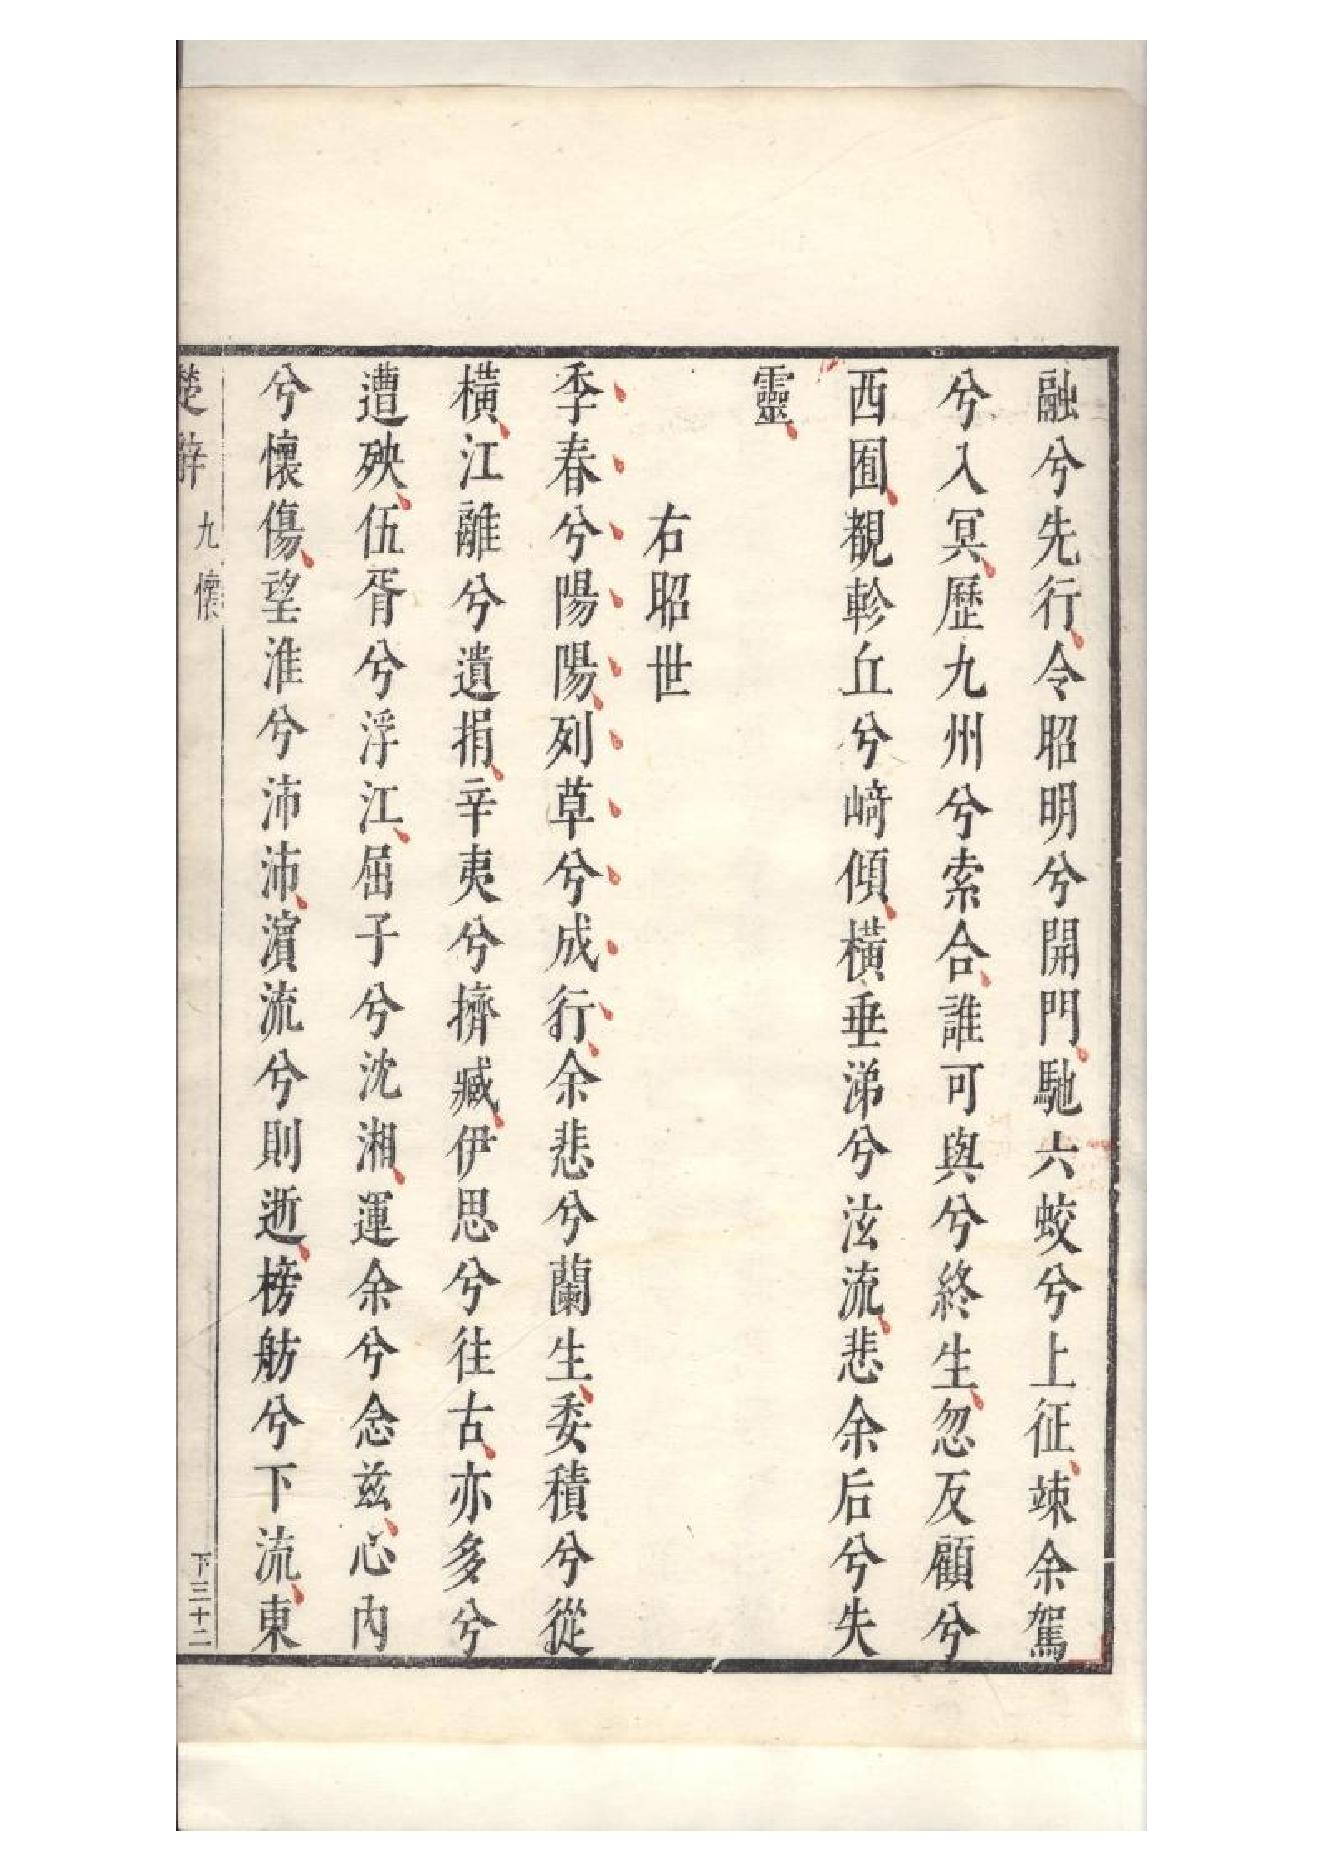 融兮先行令昭明兮開門馳六蛟兮上征竦余駕
兮入冥歷九州兮索合誰可與兮終生忽反顧兮
西囿覩軫丘兮崎傾橫垂涕兮泫流悲余后兮失
靈
右昭世
季春兮陽陽列草兮成行余悲兮蘭生委積兮從
橫江離兮遺捐辛夷兮擠臧伊思兮往古亦多兮
遭殃伍胥兮浮江屈子兮沈湘運余兮念茲心內
兮懷傷望淮兮沛沛濱流兮則逝榜舫兮下流東
楚辭 九懷 下三十二